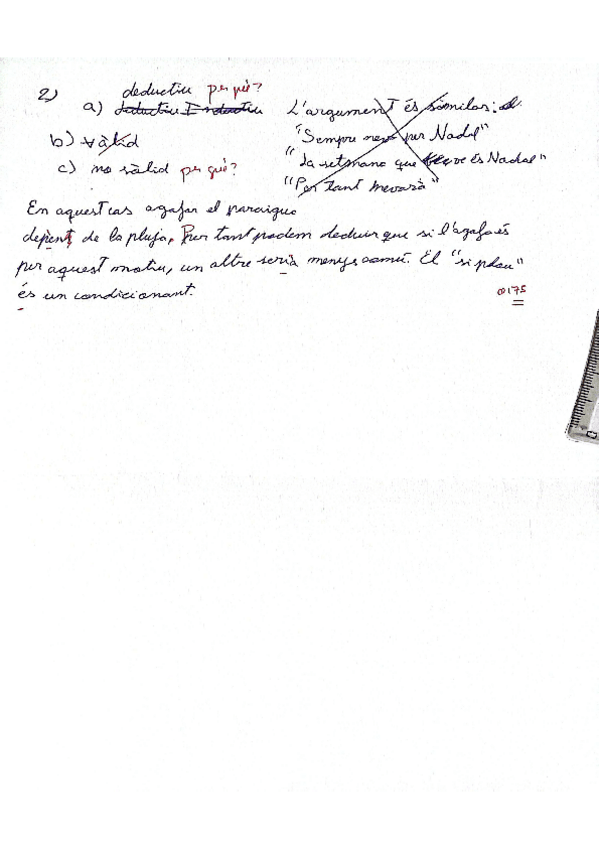 2)
deductiu per què?
a) deductiu Inductiu
b) vàlid
c) no vàlid per què?
L'argument és similar:
"Sempre neva per Nadal"
"La setmana que ve és Nadal"
"Per tant nevarà"
En aquest cas agafar el paraigue
depent de la pluja, Per tant podem deduir que si l'agafa és
per aquest motiu, un altre seria menys comú. El "si plou"
és un condicionant.
0'75